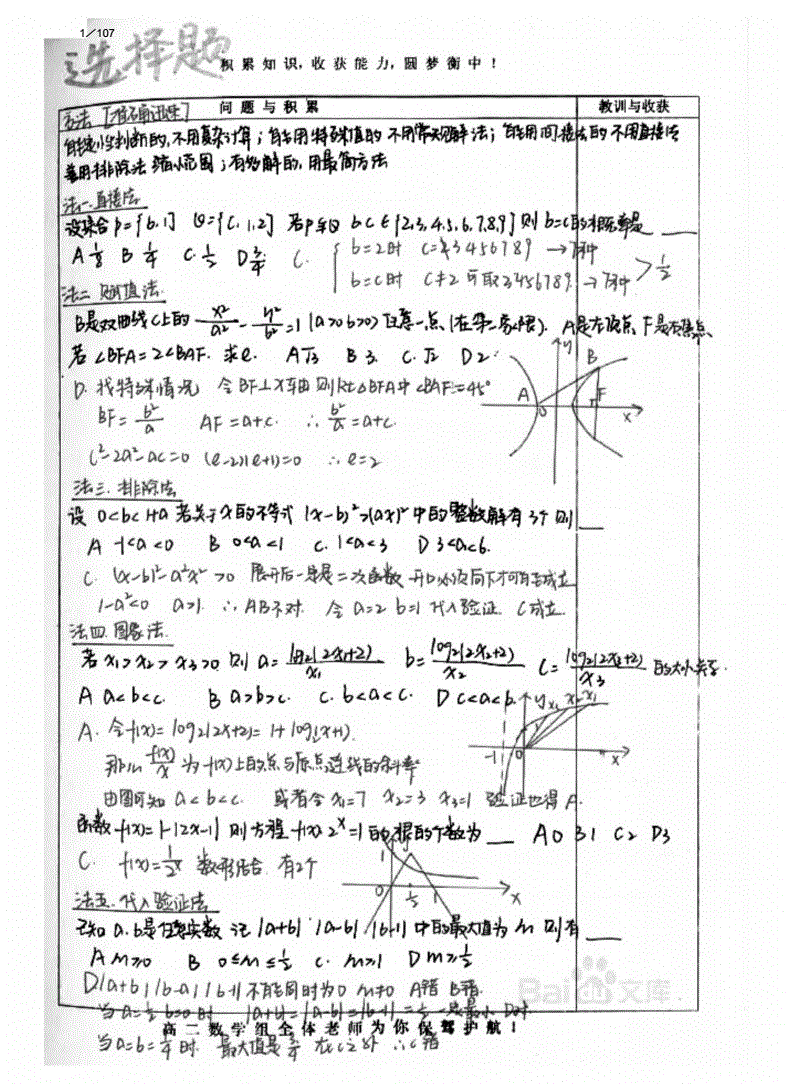 1/107
选择题
积累知识,收获能力,圆梦衡中!
问题与积累 教训与收获
方法 [准确迅速]
能定性判断的,不用复杂计算;能用特殊值的不用常规解法;能用间接法的不用直接法
善用排除法 缩小范围;有多解的,用最简方法
法一.直接法
设集合P={b,1} Q={c,1,2} 若P⊆Q b.c∈{2,3,4,5,6,7,8,9}则b=c的概率是 ___
A 1/8 B 1/4 C. 1/2 D 3/4 C. { b=2时 c=3456789 →7种
b=c时 c≠2 可取3456789 →7种 > 1/2
法二 赋值法.
B是双曲线C上的 x²/a² - y²/b² =1 (a>0 b>0) 任意一点.(在第一象限). A是左顶点 F是右焦点
若∠BFA=2∠BAF. 求e. A √3 B 3. C. √2 D 2.
D. 找特殊情况 令BF⊥X轴 则Rt△BFA中 ∠BAF=45°
BF= b²/a AF=a+c. ∴ b²/a =a+c.
c²-2a²-ac=0 (e-2)(e+1)=0 ∴e=2
A O B F x y
法三.排除法
设 0<b<1+a 若关于x的不等式 (x-b)²>(ax)² 中的整数解有3个则 ___
A -1<a<0 B 0<a<1 C. 1<a<3 D 3<a<6.
C. (x-b)²-a²x²>0 展开后一定是二次函数 开口必须向下才可能成立
1-a²<0 a>1. ∴AB不对. 令a=2 b=1 代入验证. C成立.
法四.图象法.
若x₁>x₂>x₃>0 则 a= log₂(2x₁+2)/x₁ b= log₂(2x₂+2)/x₂ c= log₂(2x₃+2)/x₃ 的大小关系.
A a<b<c. B a>b>c. C. b<a<c. D c<a<b.
A. 令f(x)=log₂(2x+2)=1+log₂(x+1).
那么 f(x)/x 为f(x)上的点与原点连线的斜率
由图可知 a<b<c. 或者令x₁=7 x₂=3 x₃=1 验证也得A.
-1 y x₃ x₂ x₁ x
函数f(x)=1-|2x-1| 则方程f(x)·2ˣ=1的根的个数为 ___ A 0 B 1 C 2 D 3
C. f(x)=1/2ˣ 数形结合. 有2个
y 1 0 1/2 1 x
法五.代入验证法
已知a.b是任意实数 记|a+b| |a-b| |b-1| 中的最大值为M 则有 ___
A M≥0 B 0≤M≤1/2 C. M≥1 D M≥1/2
D |a+b| |b-a| |b-1| 不能同时为0 M≠0 A错 B错.
高二数学组全体老师为你保驾护航!
当a=b=1/4时. 最大值是3/4 在C之外 ∴C错
Bai 文库